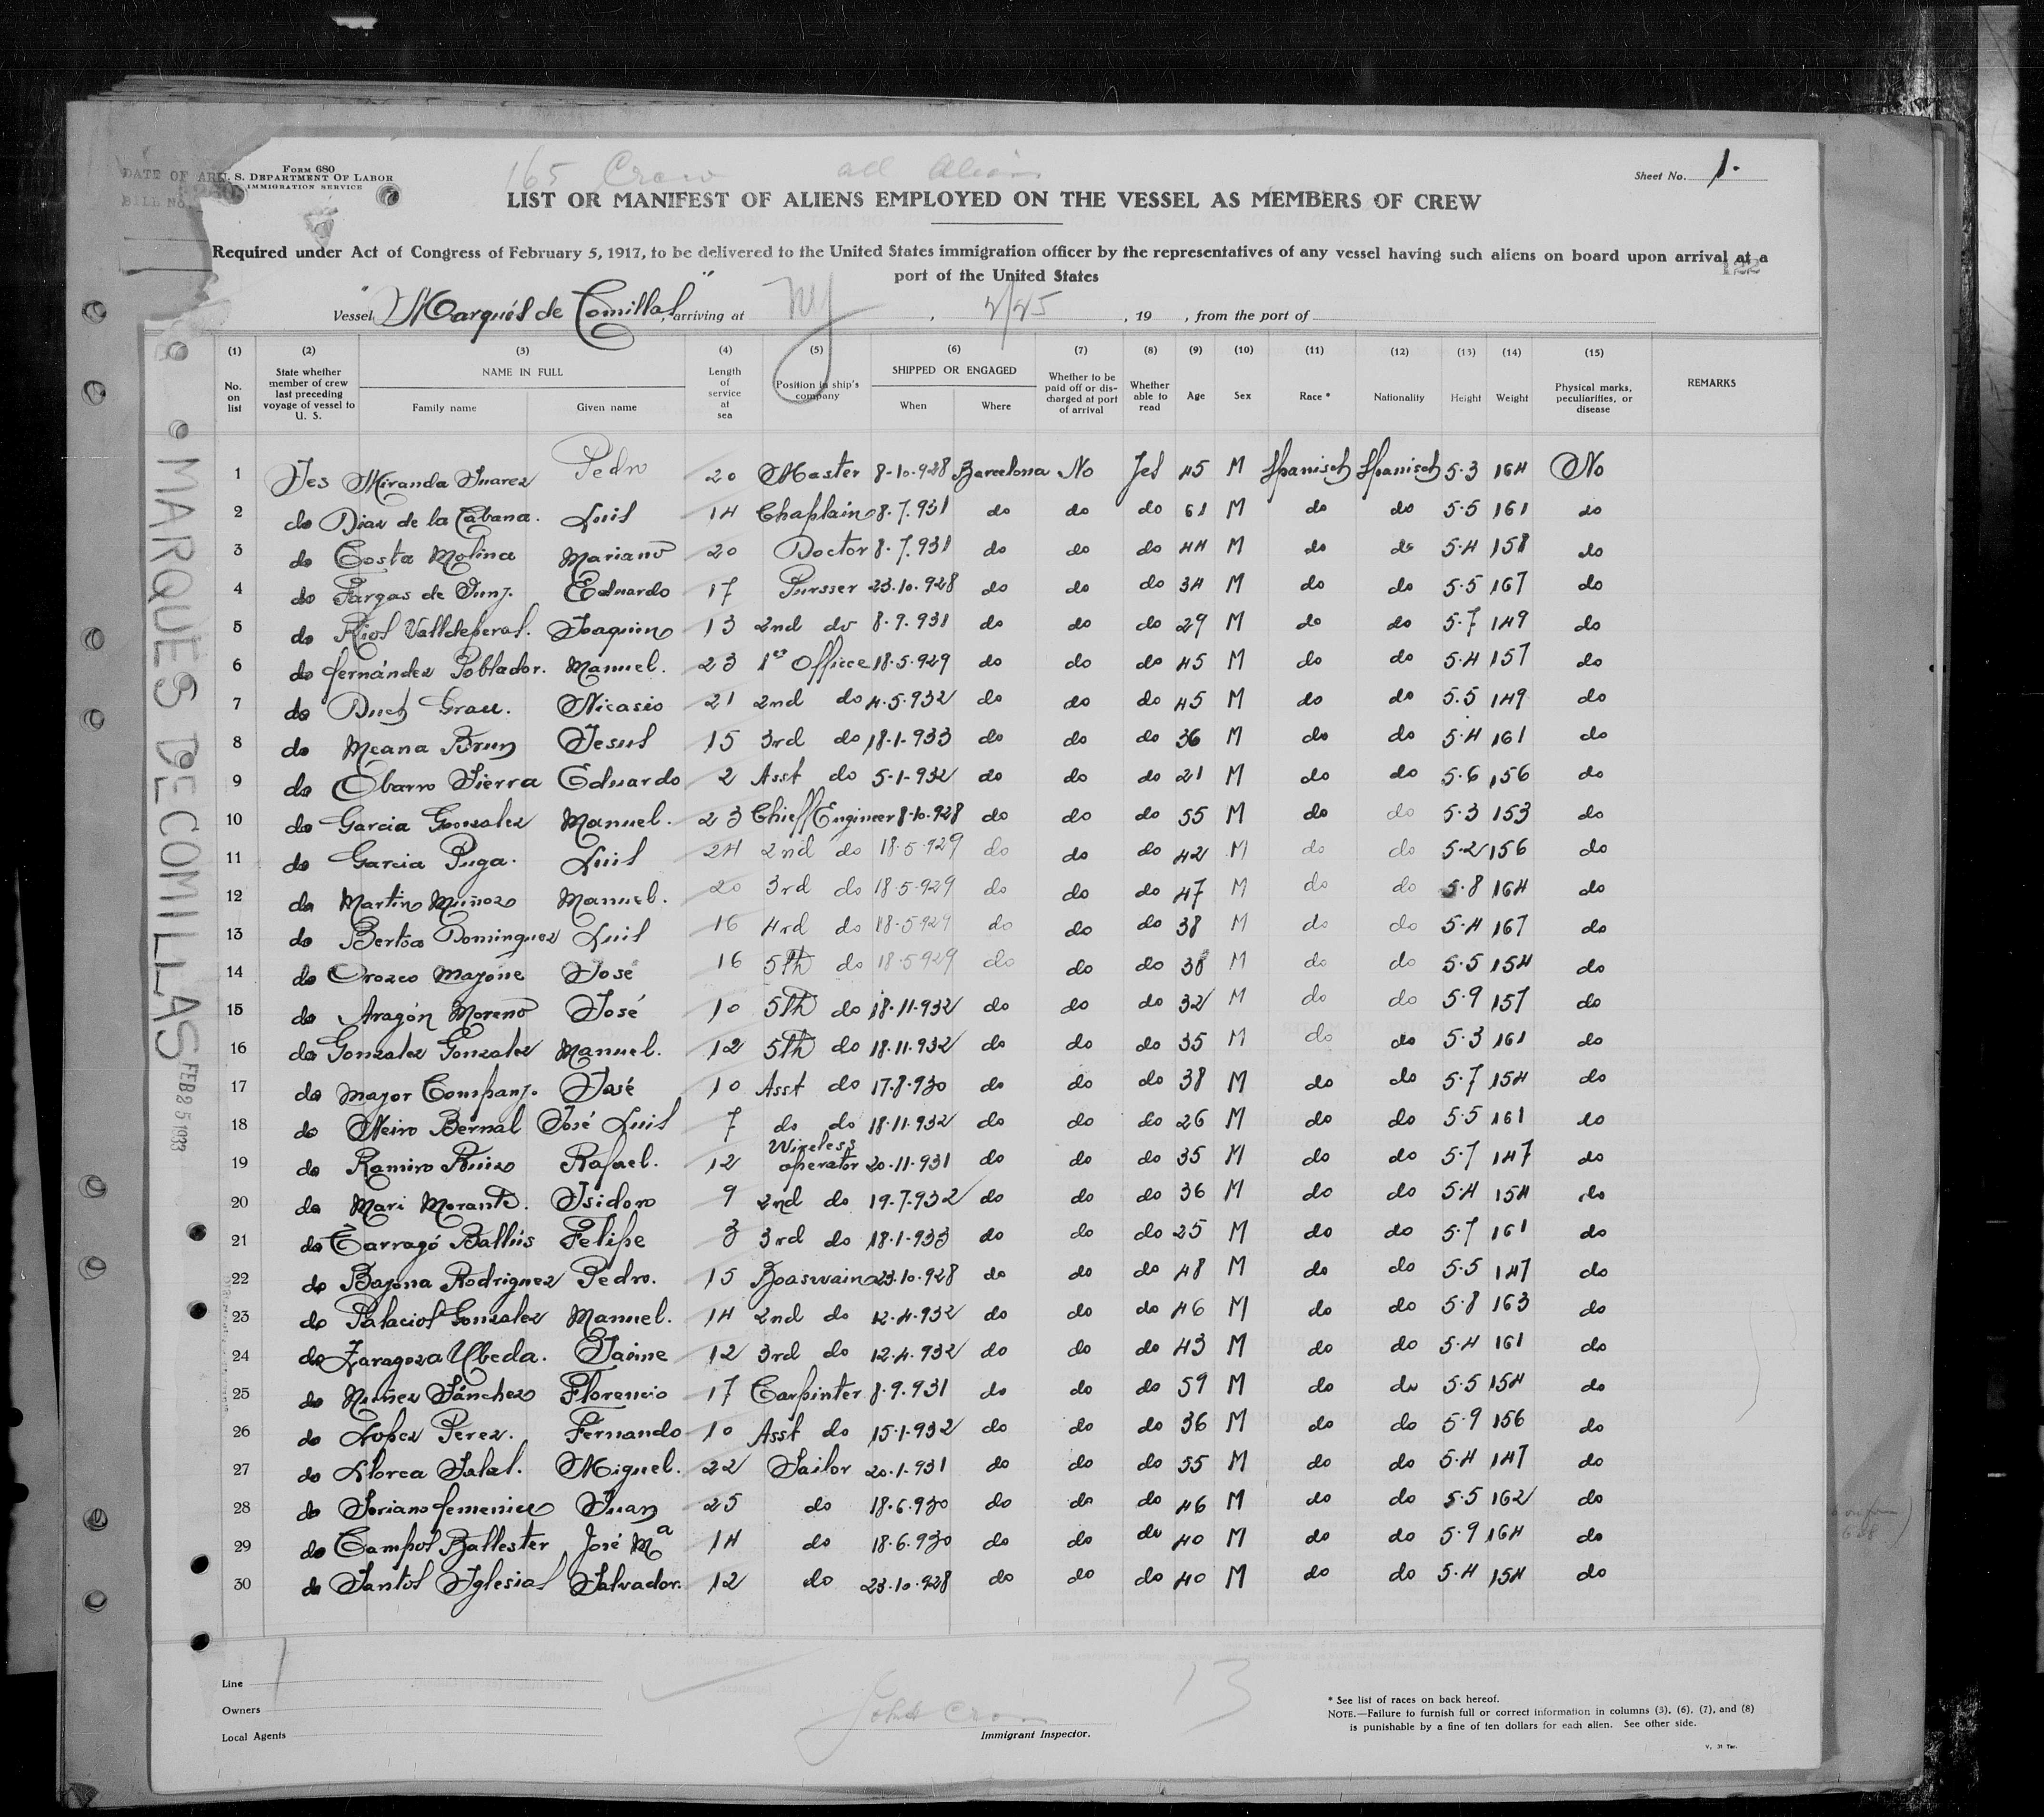 DATE OF AR
BILL No.
Form 680
U. S. DEPARTMENT OF LABOR
IMMIGRATION SERVICE
165 Crew all Aliens
Sheet No. 1.
LIST OR MANIFEST OF ALIENS EMPLOYED ON THE VESSEL AS MEMBERS OF CREW
Required under Act of Congress of February 5, 1917, to be delivered to the United States immigration officer by the representatives of any vessel having such aliens on board upon arrival at a
port of the United States
Vessel "Marqués de Comillas", arriving at NY, 2/25, 19 , from the port of
(1) (2) (3) (4) (5) (6) (7) (8) (9) (10) (11) (12) (13) (14) (15)
No. on list State whether member of crew last preceding voyage of vessel to U. S. NAME IN FULL Family name Given name Length of service at sea Position in ship's company SHIPPED OR ENGAGED When Where Whether to be paid off or discharged at port of arrival Whether able to read Age Sex Race * Nationality Height Weight Physical marks, peculiarities, or disease REMARKS
1 Yes Miranda Suarez Pedro 20 Master 8-10-928 Barcelona No Yes 45 M Spanisch Spanisch 5.3 164 No
2 do Diaz de la Cabana. Luis 14 Chaplain 8.7.931 do do do 61 M do do 5.5 161 do
3 do Costa Molina Mariano 20 Doctor 8.7.931 do do do 44 M do do 5.4 158 do
4 do Fargas de Junj. Eduardo 17 Pursser 23.10.928 do do do 34 M do do 5.5 167 do
5 do Rios Valldeperas. Joaquin 13 2nd do 8.9.931 do do do 29 M do do 5.7 149 do
6 do fernández Poblador. Manuel. 23 1er Officce 18.5.929 do do do 45 M do do 5.4 157 do
7 do Duch Grau. Nicasio 21 2nd do 4.5.932 do do do 45 M do do 5.5 149 do
8 do Meana Brun Jesus 15 3rd do 18-1-933 do do do 36 M do do 5.4 161 do
9 do Obarro Sierra Eduardo 2 Asst do 5-1-932 do do do 21 M do do 5.6 156 do
10 do Garcia Gonzalez Manuel. 23 Chieff Engineer 8-10-928 do do do 55 M do do 5.3 153 do
11 do Garcia Puga. Luis 24 2nd do 18-5-929 do do do 42 M do do 5.2 156 do
12 do Martin Muñoz Manuel. 20 3rd do 18-5-929 do do do 47 M do do 5.8 164 do
13 do Bertoa Dominguez Luis 16 4rd do 18-5-929 do do do 38 M do do 5.4 167 do
14 do Orozco Mayone José 16 5th do 18-5-929 do do do 38 M do do 5.5 154 do
15 do Aragón Moreno José 10 5th do 18-11-932 do do do 32 M do do 5.9 157 do
16 do Gonzalez Gonzalez Manuel. 12 5th do 18-11-932 do do do 35 M do do 5.3 161 do
17 do Mayor Companj. José 10 Asst do 17-8-930 do do do 38 M do do 5.7 154 do
18 do Neiro Bernal José Luis 7 do do 18-11-932 do do do 26 M do do 5.5 161 do
19 do Ramiro Ruiz Rafael. 12 Wireless operator 20-11-931 do do do 35 M do do 5.7 147 do
20 do Mari Morante. Isidoro 9 2nd do 19-7-932 do do do 36 M do do 5.4 154 do
21 do Tarragó Ballús Felipe 3 3rd do 18-1-933 do do do 25 M do do 5.7 161 do
22 do Bayona Rodriguez Pedro. 15 Boaswain 23-10-928 do do do 48 M do do 5.5 147 do
23 do Palacios Gonzalez Manuel. 14 2nd do 12-4-932 do do do 46 M do do 5.8 163 do
24 do Zaragoza Ubeda. Jaime 12 3rd do 12.4.932 do do do 43 M do do 5.4 161 do
25 do Nuñez Sánchez Florencio 17 Carpinter 8.9.931 do do do 59 M do do 5.5 154 do
26 do Lopez Perez. Fernando 10 Asst do 15-1-932 do do do 36 M do do 5.9 156 do
27 do Llorca Salas. Miguel. 22 Sailor 20-1-931 do do do 55 M do do 5.4 147 do
28 do Soriano femenice Juan 25 do 18.6.930 do do do 46 M do do 5.5 162 do
29 do Campos Ballester José Ma 14 do 18.6.930 do do do 40 M do do 5.9 164 do
30 do Santos Iglesias Salvador. 12 do 23-10-928 do do do 40 M do do 5.4 154 do
MARQUES DE COMILLAS FEB 25 1933
Line
Owners
Local Agents
13
Immigrant Inspector.
* See list of races on back hereof.
NOTE.—Failure to furnish full or correct information in columns (3), (6), (7), and (8)
is punishable by a fine of ten dollars for each alien. See other side.